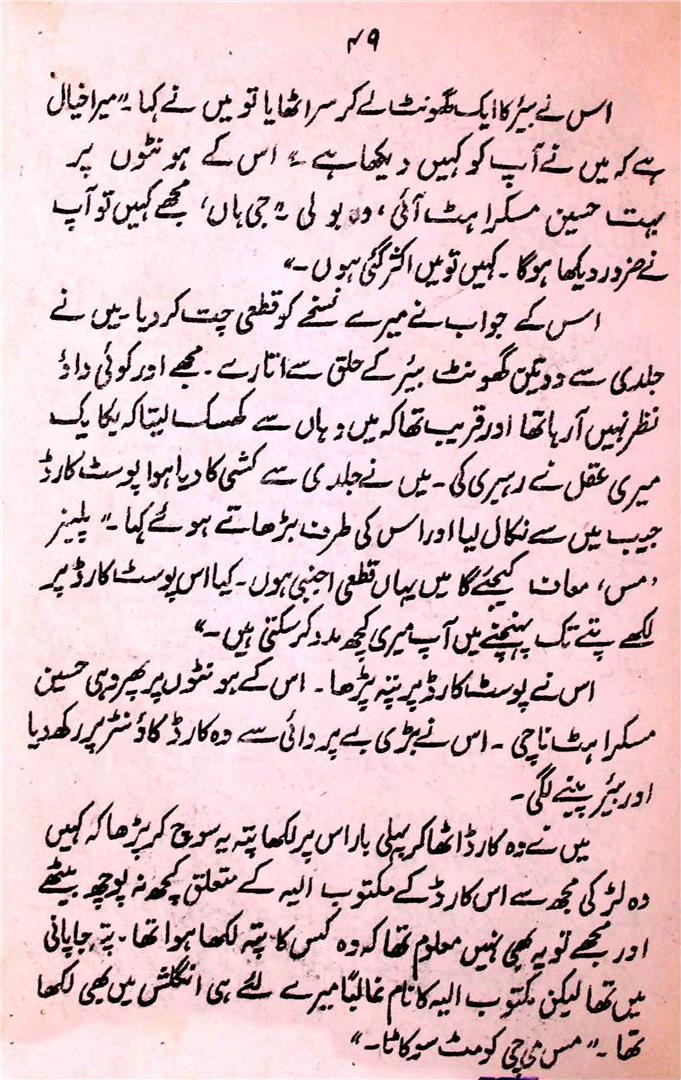 ۴۹
اس نے بیئر کا ایک گھونٹ لے کر سر اٹھایا تو میں نے کہا۔ "میرا خیال
ہے کہ میں نے آپ کو کہیں دیکھا ہے۔" اس کے ہونٹوں پر
بہت حسین مسکراہٹ آئی، وہ بولی "جی ہاں، مجھے کہیں تو آپ
نے ضرور دیکھا ہوگا۔ کہیں تو میں اکثر گئی ہوں۔"
اس کے جواب نے میرے نسخے کو قطعی چت کر دیا۔ میں نے
جلدی سے دو تین گھونٹ بیئر کے حلق سے اتارے۔ مجھے اور کوئی داؤ
نظر نہیں آ رہا تھا اور قریب تھا کہ میں وہاں سے کھسک لیتا کہ یکا یک
میری عقل نے رہبری کی۔ میں نے جلدی سے کشی کا دیا ہوا پوسٹ کارڈ
جیب میں سے نکال لیا اور اس کی طرف بڑھاتے ہوئے کہا۔ "پلیز
مس، معاف کیجئے گا میں یہاں قطعی اجنبی ہوں۔ کیا اس پوسٹ کارڈ پر
لکھے پتے تک پہنچنے میں آپ میری کچھ مدد کر سکتی ہیں۔"
اس نے پوسٹ کارڈ پر پتہ پڑھا۔ اس کے ہونٹوں پر پھر وہی حسین
مسکراہٹ ناچی۔ اس نے بڑی بے پروائی سے وہ کارڈ کاؤنٹر پر رکھ دیا
اور بیئر پینے لگی۔
میں نے وہ کارڈ اٹھا کر پہلی بار اس پر لکھا پتہ یہ سوچ کر پڑھا کہ کہیں
وہ لڑکی مجھ سے اس کارڈ کے مکتوب الیہ کے متعلق کچھ نہ پوچھ بیٹھے
اور مجھے تو یہ بھی نہیں معلوم تھا کہ وہ کس کا پتہ لکھا ہوا تھا۔ پتہ جاپانی
میں تھا لیکن مکتوب الیہ کا نام غالباً میرے لئے ہی انگلش میں بھی لکھا
تھا۔ "مس می چی کو مٹ سوکاٹا۔"